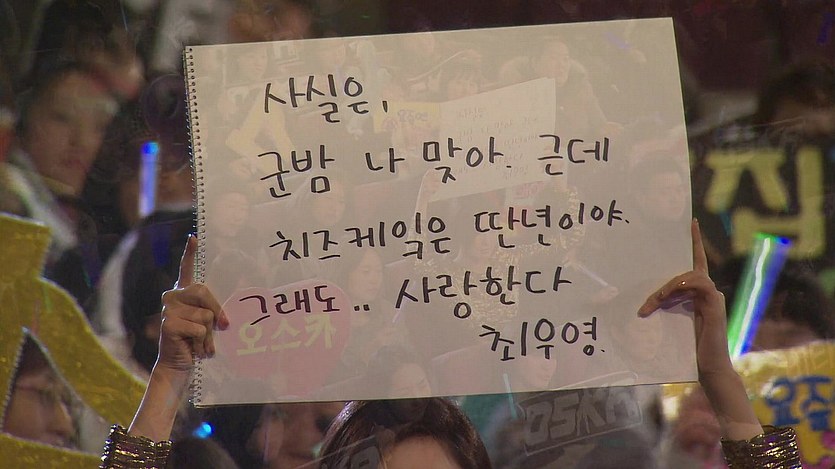 사실은,
군밤 나 맞아. 근데
치즈케잌은 딴년이야.
그래도.. 사랑한다
최우영.
오스카
집
OSKA